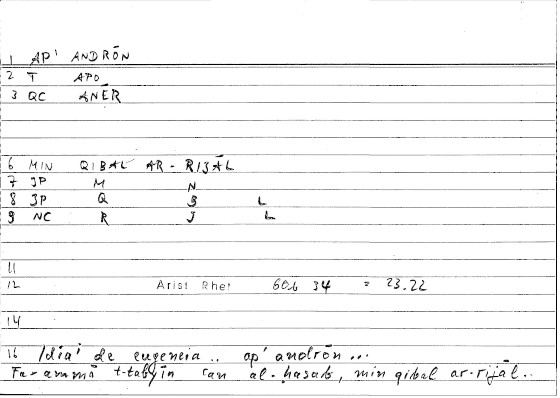 1 AP' ANDRŌN
2 T APO
3 QC ANĒR
6 MIN QIBAL AR-RIJĀL
7 JP M N
8 JP Q B L
9 NC R J L
11
12 Arist Rhet 60b 34 = 23.22
14
16 Idiāi de eugeneia .. ap' andrōn ...
Fa-ammā t-tabyīn can al-hasab, min qibal ar-rijāl..